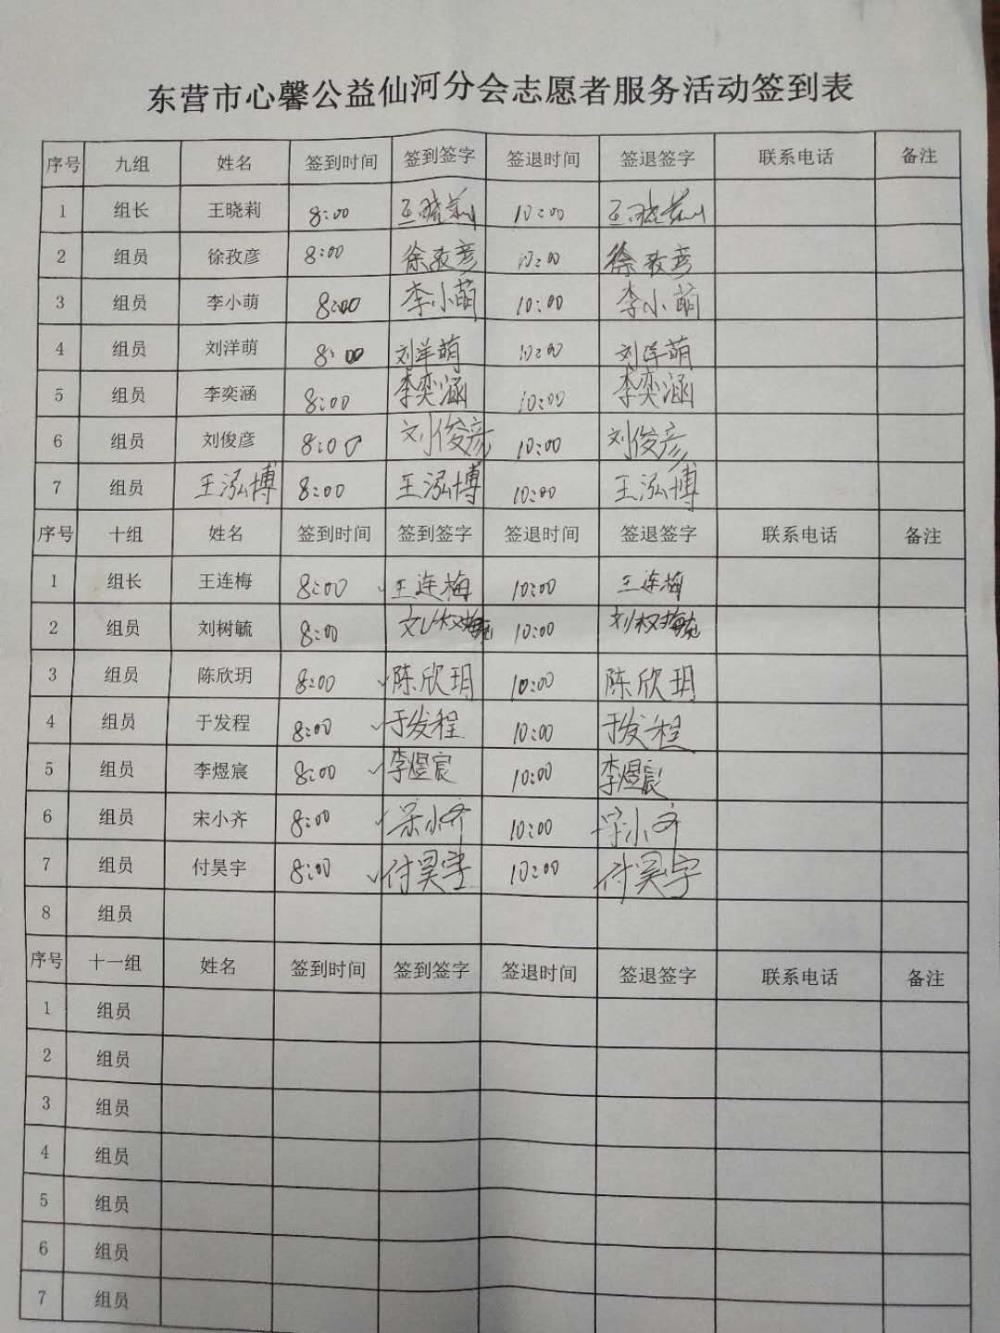 东营市心馨公益仙河分会志愿者服务活动签到表
序号 九组 姓名 签到时间 签到签字 签退时间 签退签字 联系电话 备注
1 组长 王晓莉 8:00 王晓莉 10:00 王晓莉
2 组员 徐孜彦 8:00 徐孜彦 10:00 徐孜彦
3 组员 李小萌 8:00 李小萌 10:00 李小萌
4 组员 刘洋萌 8:00 刘洋萌 10:00 刘洋萌
5 组员 李奕涵 8:00 李奕涵 10:00 李奕涵
6 组员 刘俊彦 8:00 刘俊彦 10:00 刘俊彦
7 组员 王泓博 8:00 王泓博 10:00 王泓博
序号 十组 姓名 签到时间 签到签字 签退时间 签退签字 联系电话 备注
1 组长 王连梅 8:00 王连梅 10:00 王连梅
2 组员 刘树毓 8:00 刘树毓 10:00 刘树毓
3 组员 陈欣玥 8:00 陈欣玥 10:00 陈欣玥
4 组员 于发程 8:00 于发程 10:00 于发程
5 组员 李煜宸 8:00 李煜宸 10:00 李煜宸
6 组员 宋小齐 8:00 宋小齐 10:00 宋小齐
7 组员 付昊宇 8:00 付昊宇 10:00 付昊宇
8 组员
序号 十一组 姓名 签到时间 签到签字 签退时间 签退签字 联系电话 备注
1 组员
2 组员
3 组员
4 组员
5 组员
6 组员
7 组员